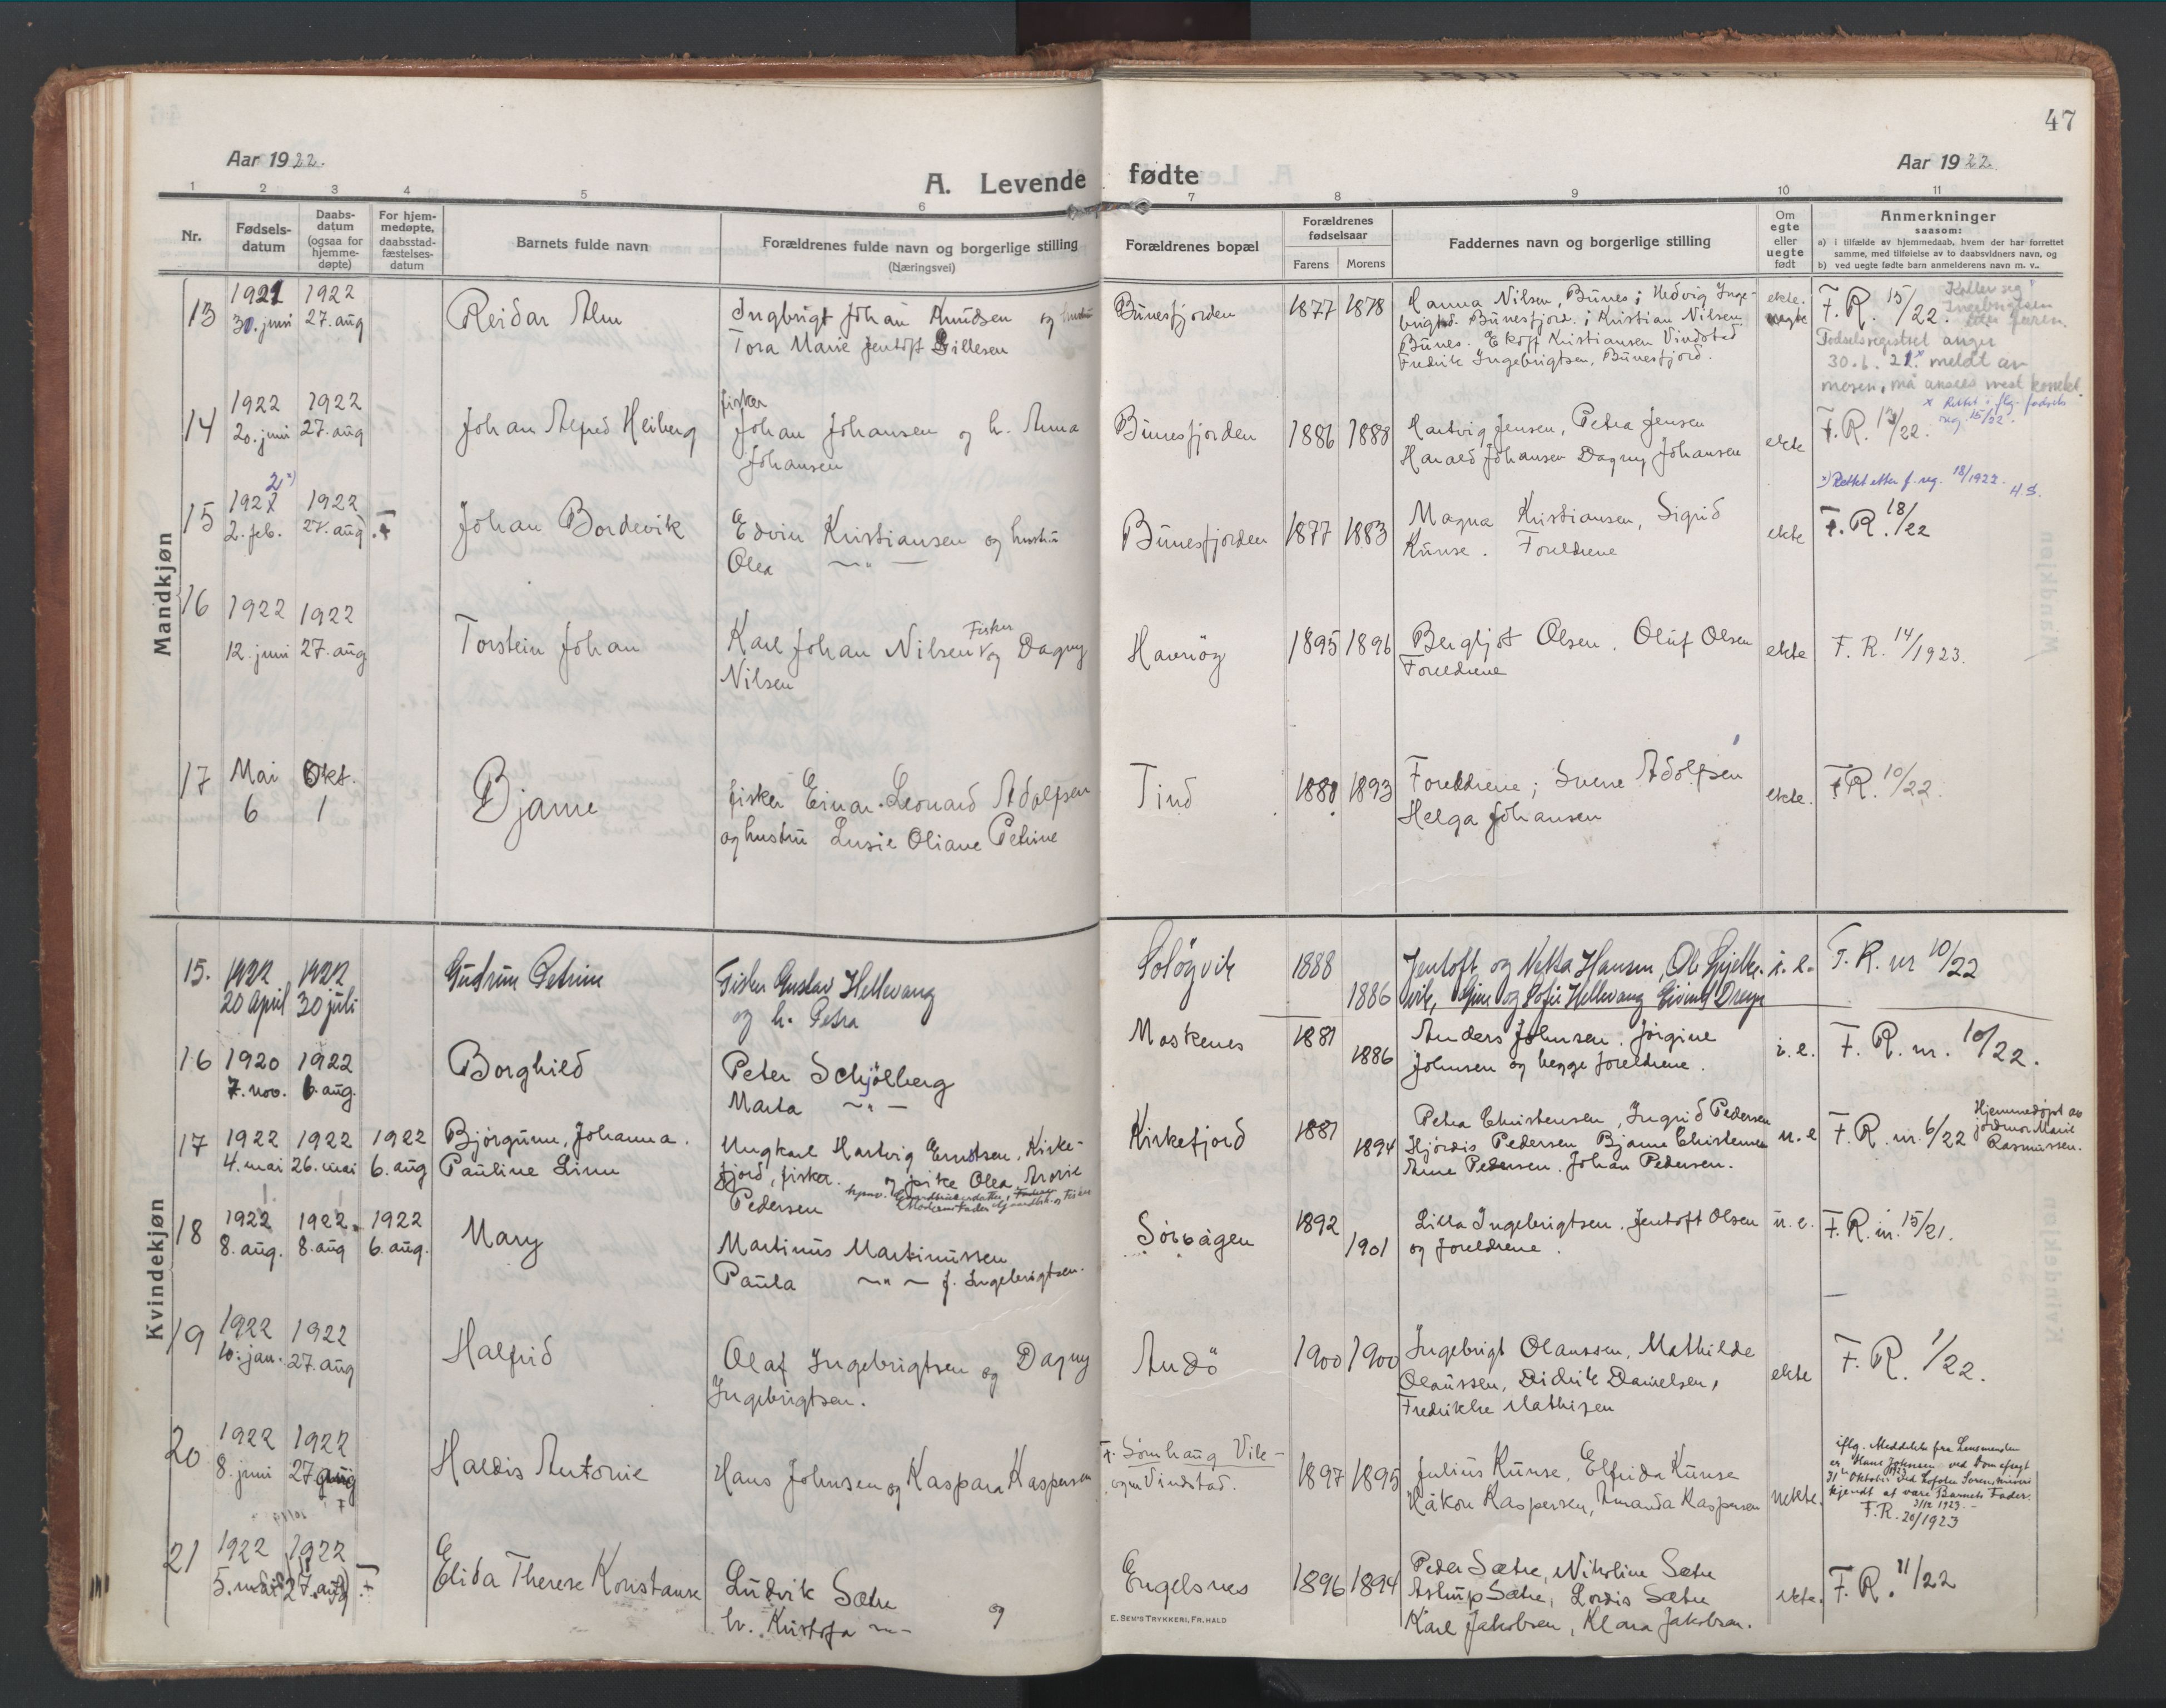 47
Aar 1922.
Aar 1922
A. Levende fødte
1 2 3 4 5 6 7 8 9 10 11
Nr.
Fødsels-
datum
Daabs-
datum
(ogsaa for
hjemme-
døpte)
For hjem-
medøpte,
daabsstad-
fæstelses-
datum
Barnets fulde navn
Forældrenes fulde navn og borgerlige stilling
(Næringsvei)
Forældrenes bopæl
Forældrenes
fødselsaar
Farens Morens
Faddernes navn og borgerlige stilling
Om
egte
eller
uegte
født
Anmerkninger
saasom:
a) i tilfælde av hjemmedaab, hvem der har forrettet
samme, med tilføielse av to daabsvidners navn, og
b) ved uegte fødte barn anmelderens navn m. v..
Mandkjøn
13
1921
30. juni
1922
27. aug
Reidar Alm
Ingbrigt Johan Knudsen og hustru
Tora Marie Jentoft Gillesen
Bunesfjorden
1877 1878
Hanna Nilsen, Bunes; Hedvig Inge-
brigtsd. Bunesfjord. ; Kristian Nilsen
Bunes. Ekoff Kristiansen Vindstad
Fredrik Ingebrigtsen, Bunesfjord.
ekte.
F. R. 15/22.
Kaller seg
Ingebrigtsen
etter faren.
Fødselsregistret angir
30.6.21.x meldt av
moren, må ansees mest korrekt.
x Rettet i flg. fødsels
reg. 15/22.
14
1922
20. juni
1922
27. aug
Johan Alfred Heiberg
fisker
Johan Johansen og h. Anna
Johansen
Bunesfjorden
1886 1888
Hartvig Jensen, Petra Jensen
Harald Johansen Dagny Johansen
ekte
F. R. /22.
x) Rettet etter f. reg. 18/1922. H.S.
15
1922 x)
2. feb.
1922
27. aug
Johan Bordevik
Edvin Kristiansen og hustru
Olea —"—
Bunesfjorden
1877 1883
Magna Kristiansen, Sigrid
Kunse. Foreldrene
ekte
F. R. 18/22
16
1922
12. juni
1922
27. aug
Torstein Johan
Fisker
Karl Johan Nilsen og Dagny
Nilsen
Havnög
1895 1896
Bergljot Olsen. Oluf Olsen
Foreldrene
ekte
F. R. 14/1923.
17
Mai
6
Okt.
1
Bjarne
fisker Einar Leonard Adolfsen
og hustru Lusie Oliane Petrine
Tind
1880 1893
Foreldrene; Sverre Adolfsen
Helga Johansen
ekte.
F R. 10/22.
Kvindekjøn
15.
1922
20 april
1922
30 juli
Gudrun Petrine
Fisker Gustav Hellevang
og h. Petra
Solögvik
1888
1886
Jentoft og Netta Hansen, Ole Gjelke-
vik, Gine og Sofie Hellevang Eivind Dreyer
i. e.
F. R. nr 10/22
16
1920
7. nov.
1922
6. aug.
Borghild
Peter Schjölberg
Marta —"—
Moskenes
1881
1886
Anders Johnsen. Jörgine
Johnsen og begge foreldrene.
i. e.
F. R. nr. 10/22.
17
1922
4. mai
1922
26. mai
1922
6. aug
Bjørgunn, Johanna.
Pauline Linn
Ungkarl Hartvig Erntsen, Kirke-
fjord, fisker. og pike Olea
Pedersen
Kirkefjord
1881
1894
Petra Christensen, Ingrid Pedersen
Hjördis Pedersen, Bjarne Christensen
Anne Pedersen. Johan Pedersen.
u. e
F. R. nr. 6/22
Hjemmedøpt av
jordmor Marie
Rasmussen.
18
1922
8. aug.
1922.
8. aug
1922
6. aug.
Mary
Martinus Martinussen
Paula —"— f. Ingebrigtsen.
Sörvågen
1892
1901
Lilla Ingebrigtsen. Jentoft Olsen
og foreldrene.
u. e.
F. R. nr. 15/21.
19
1922
10. jan.
1922
27. aug
Halfrid
Olaf Ingebrigtsen og Dagny
Ingebrigtsen.
Andö
1900 1900
Ingebrigt Olaussen, Mathilde
Olaussen, Didrik Danielsen,
Fredrikke Mathisen
ekte
F. R. 1/22.
20
1922
8. juni
1922
27. aug
Haldis Antonie
Hans Johnsen og Kaspara Kaspersen
F. Sörnhaug Vik-
ogm Vindstad.
1897 1895
Julius Kunse, Elfrida Kunse
Håkon Kaspersen, Amanda Kaspersen
uekte.
iflg. Meddelelse fra Lensmanden
er Hans Johnsen ved Dom afsagt
31 Oktober 1923 ved Lofoten Sorenskriveri
kjendt at være Barnets Fader.
3/12 1923.-
F. R. 20/1923
21
1922
5. mai
1922
27. aug
Elida Therese Konstanse
Ludvik Sætre og
h. Kristofa —"—
Engelsnes
1896 1894
Peder Sætre, Nikoline Sætre
Astrup Sætre, Lordis Sætre
Karl Jakobsen, Klara Jakobsen.
ekte.
F. R. 11/22
E. SEM'S TRYKKERI, FR. HALD